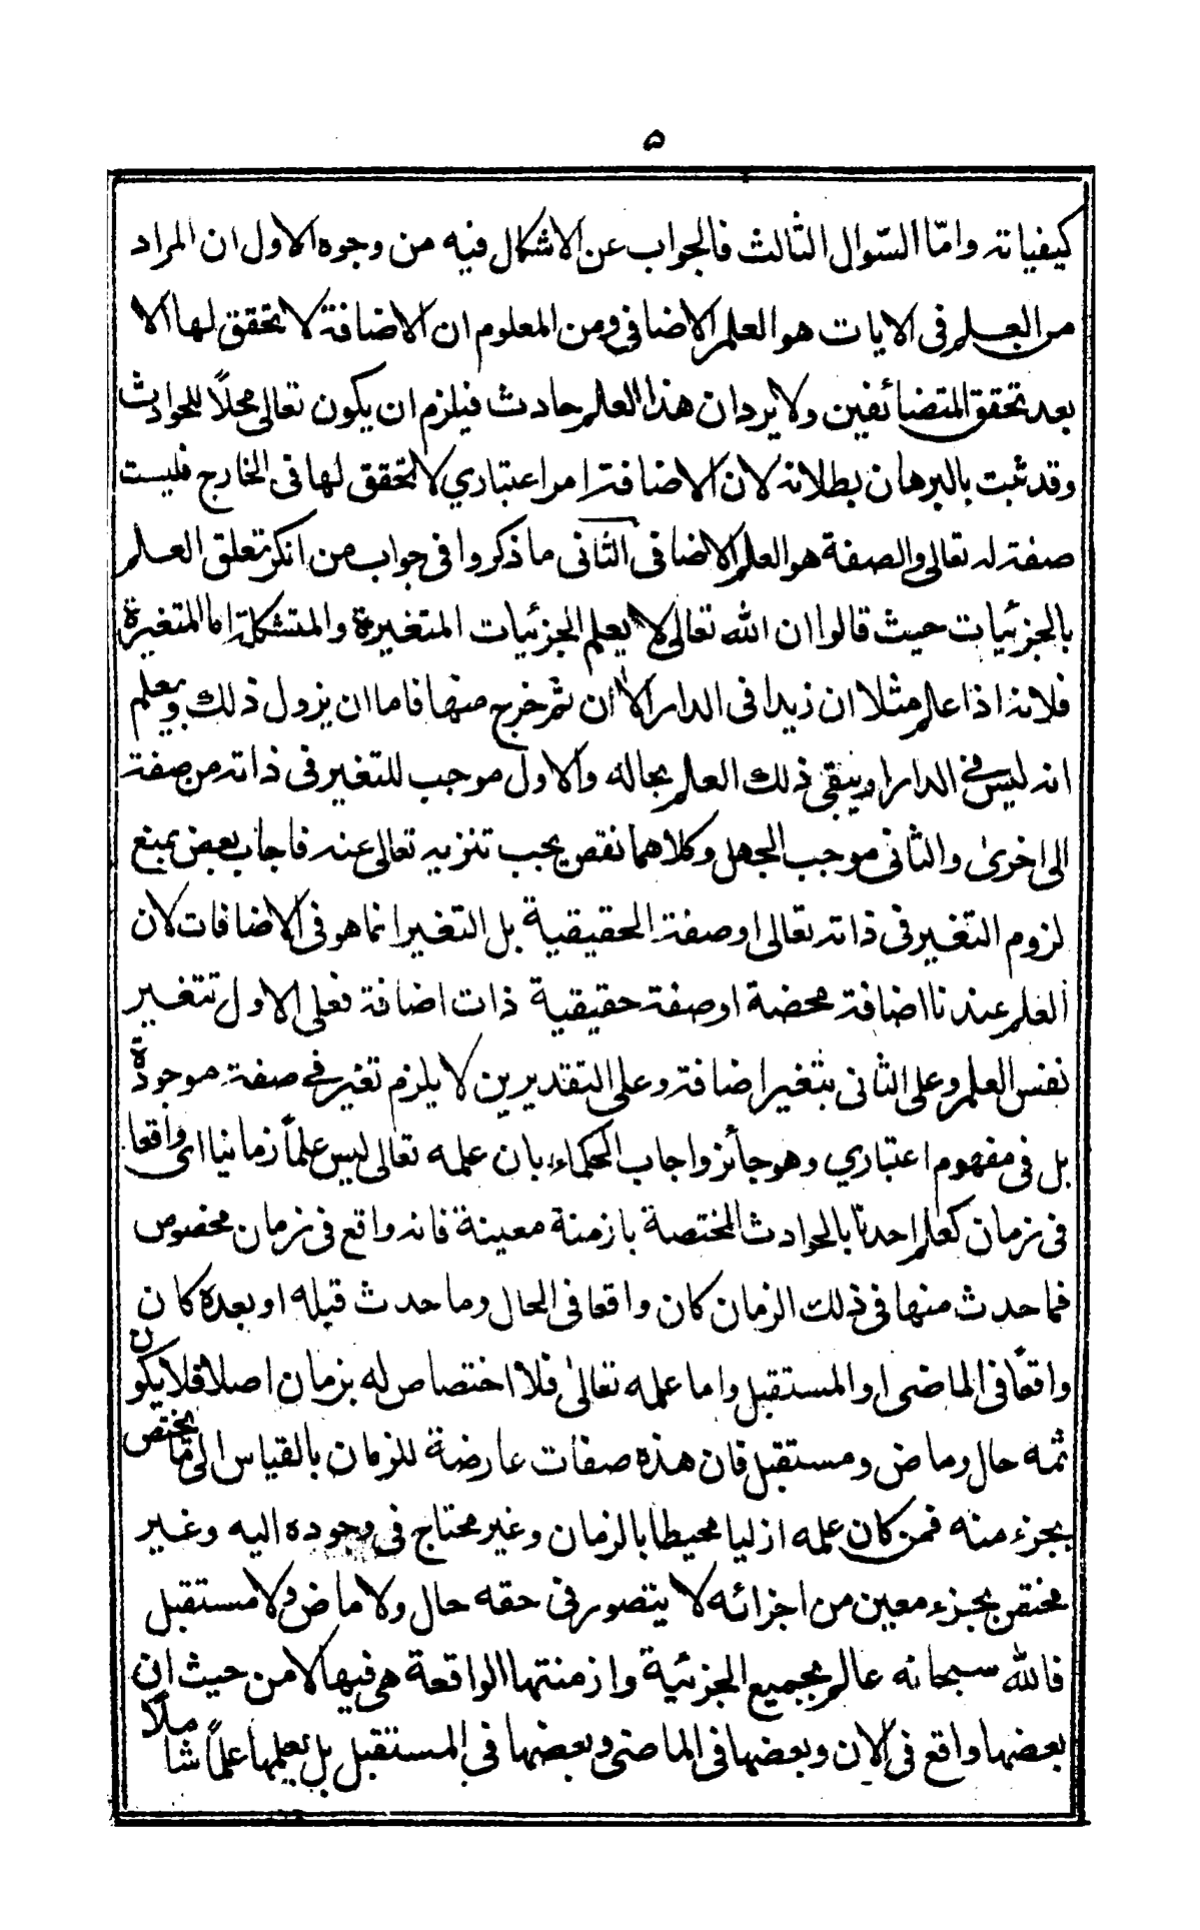 ۵
كيفياته واما السّوال الثالث فالجواب عن الاشكال فيه من وجوه الاول ان المراد
من العلم فى الايات هو العلم الاضافى ومن المعلوم ان الاضافة لا تحقق لها الا
بعد تحقق المتضائفين ولا يرد ان هذا العلم حادث فيلزم ان يكون تعالى محلاً للحوادث
وقد ثبت بالبرهان بطلانه لان الاضافة امر اعتباري لا تحقق لها فى الخارج فليست
صفة له تعالى والصفة هو العلم الاضافى الثانى ما ذكروا فى جواب من انكر تعلق العلم
بالجزئيات حيث قالوا ان الله تعالى لا يعلم الجزئيات المتغيرة والمتشكلة اما المتغيرة
فلانه اذا علم مثلا ان زيدا فى الدار الان ثم خرج منها فاما ان يزول ذلك ويعلم
انه ليس فى الدار او يبقى ذلك العلم بحاله والاول موجب للتغير فى ذاته من صفة
الى اخرىٰ والثانى موجب الجهل وكلاهما نقص يجب تنزيه تعالى عنه فاجاب بعض بمنع
لزوم التغير فى ذاته تعالى او صفته الحقيقية بل التغير انما هو فى الاضافات لان
العلم عندنا اضافة محضة او صفة حقيقية ذات اضافة فعلى الاول تتغير
نفس العلم وعلى الثانى بتغير اضافته وعلى التقديرين لا يلزم تغير فى صفة موجودة
بل فى مفهوم اعتباري وهو جائز واجاب الحكماء بان علمه تعالى ليس علماً زمانيا اى واقعا
فى زمان كعلم احدنا بالحوادث المختصة بازمنة معينة فانه واقع فى زمان مخصوص
فما حدث منها فى ذلك الزمان كان واقعا فى الحال وما حدث قبله او بعده كان
واقعًا فى الماضى او المستقبل واما علمه تعالىٰ فلا اختصاص له بزمان اصلا فلا يكون
ثمه حال وماض ومستقبل فان هذه صفات عارضة للزمان بالقياس الى ما يختص
بجزء منه فمن كان علمه ازليا محيطا بالزمان وغير محتاج فى وجوده اليه وغير
مختص بجزء معين من اجزائه لا يتصور فى حقه حال ولا ماض ولا مستقبل
فالله سبحانه عالم بجميع الجزئية وازمنتها الواقعة هى فيها لا من حيث ان
بعضها واقع فى الان وبعضها فى الماضى وبعضها فى المستقبل بل يعلمها علماً شاملًا